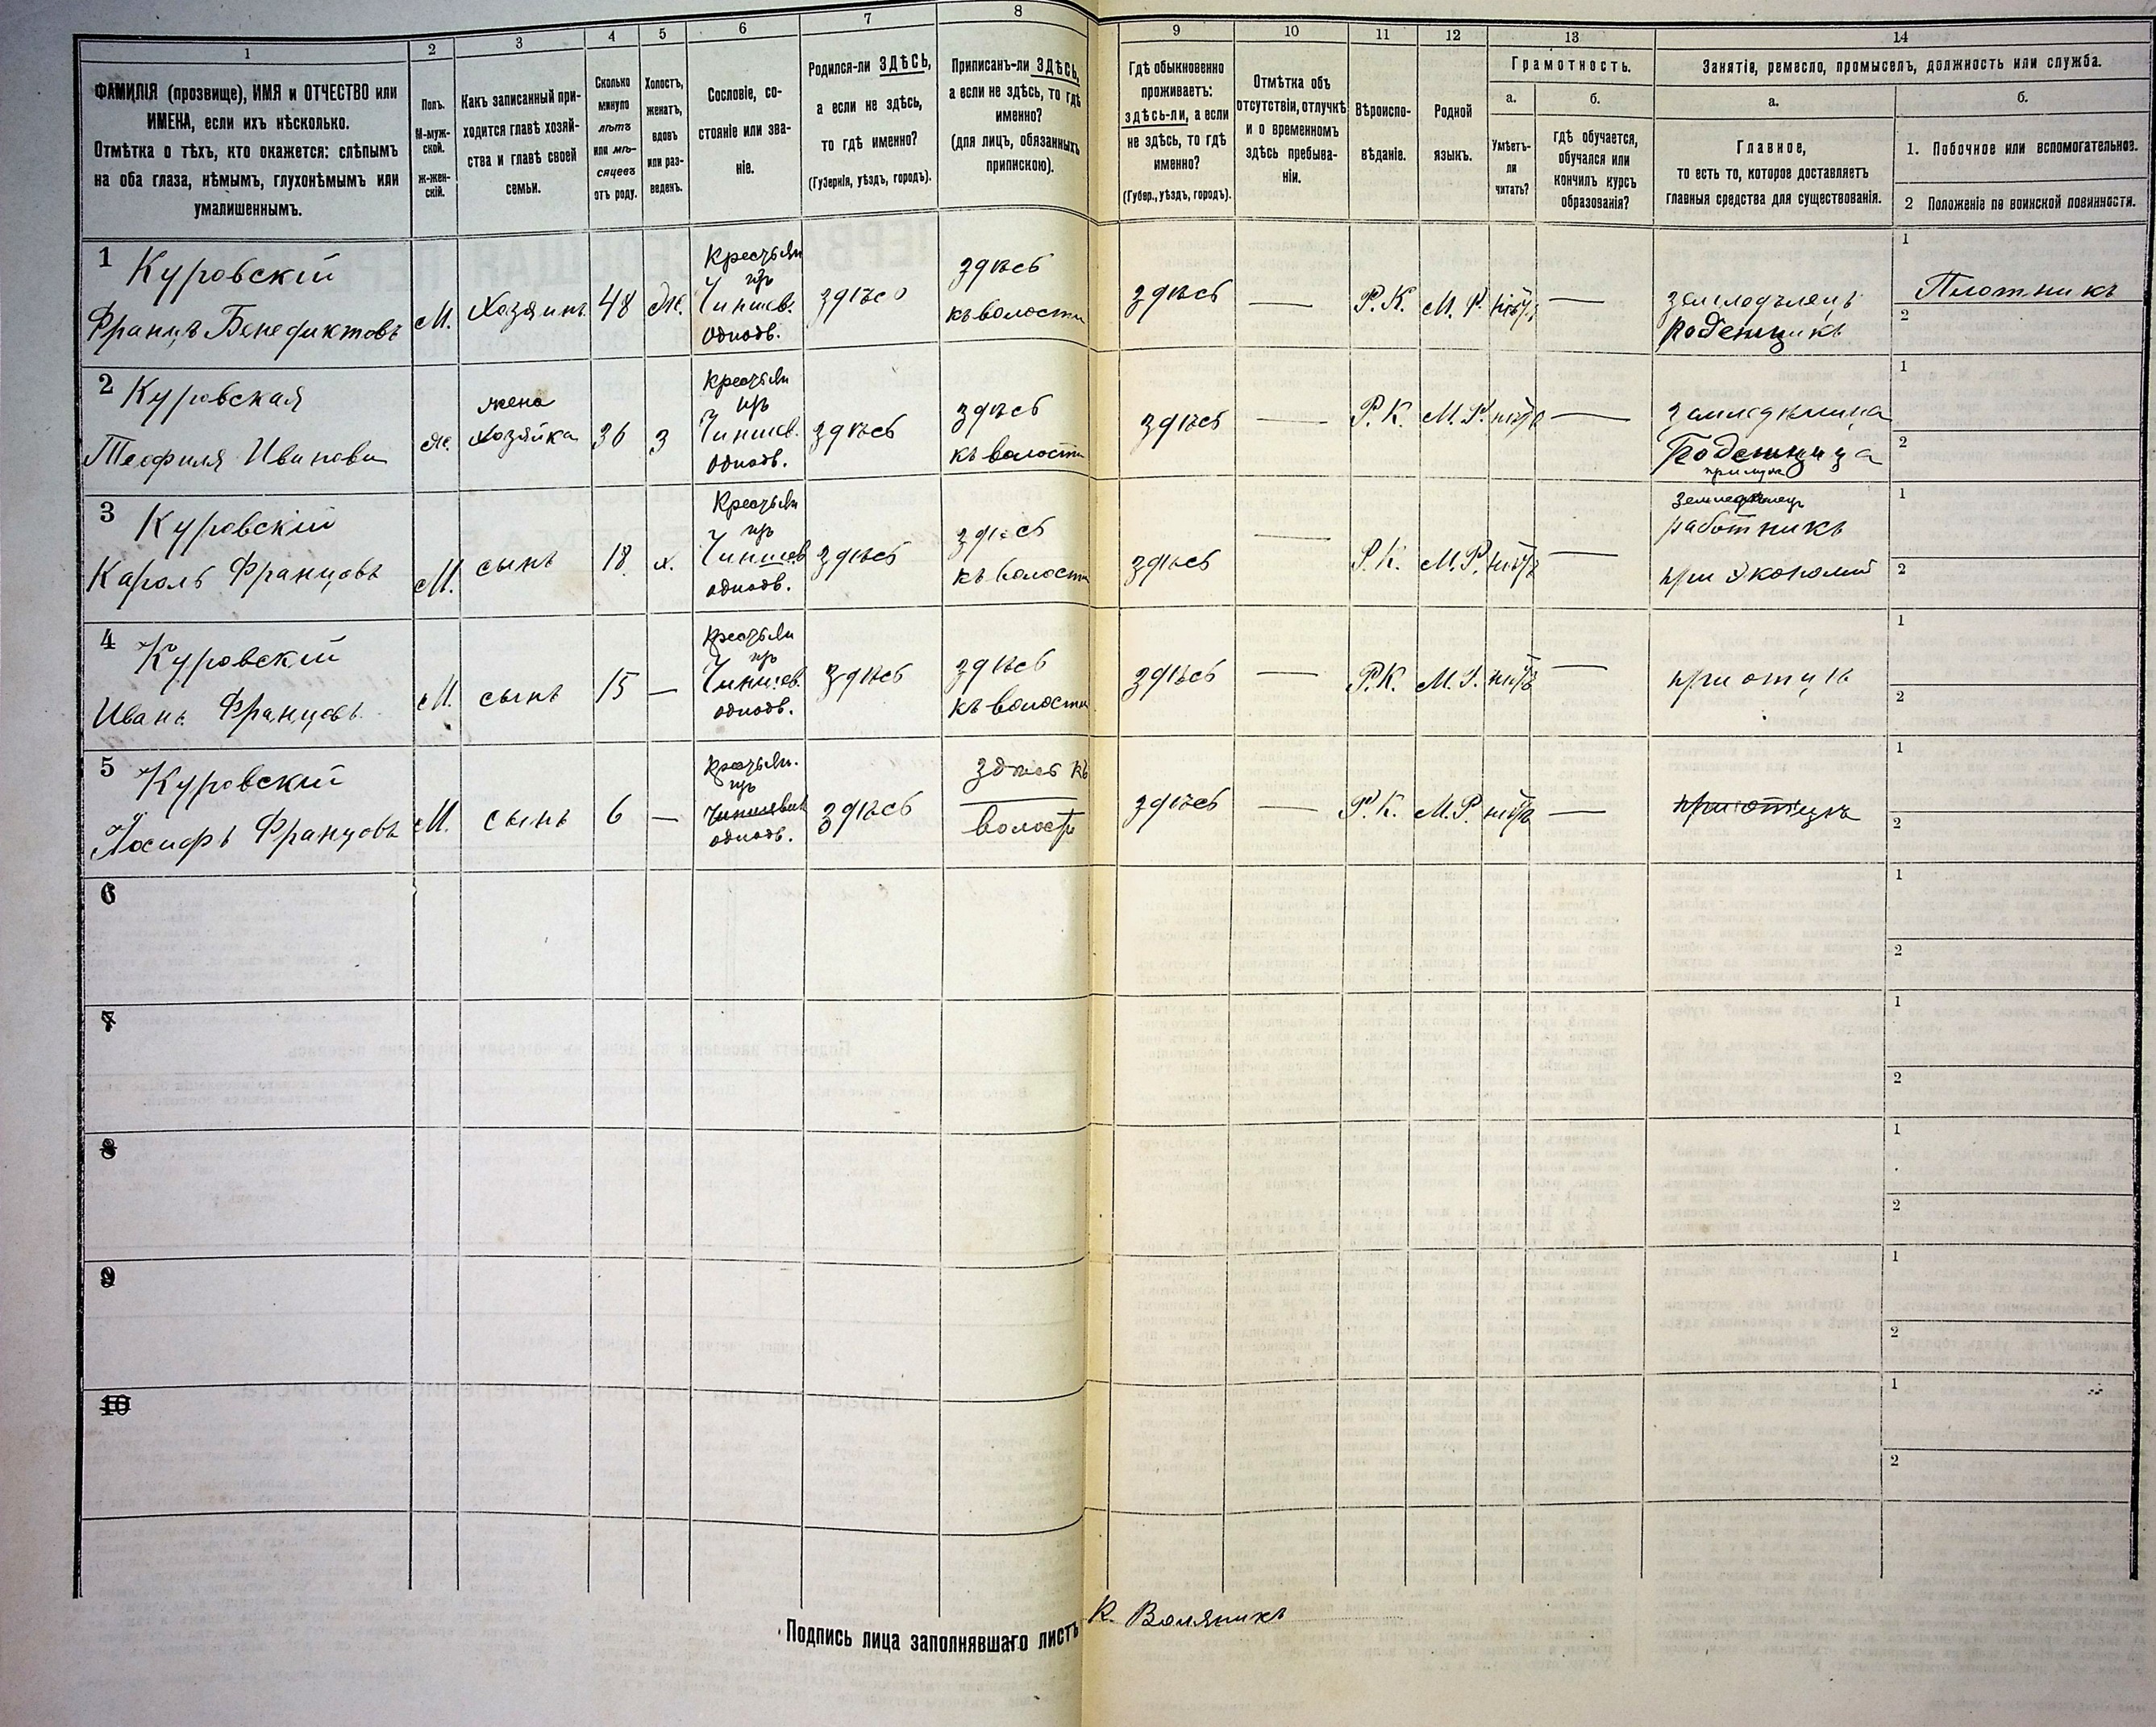 1
2
3
4
5
6
7
8
9
10
11
12
13
14
ФАМИЛІЯ (прозвище), ИМЯ и ОТЧЕСТВО или
ИМЕНА, если ихъ нѣсколько.
Отмѣтка о тѣхъ, кто окажется: слѣпымъ
на оба глаза, нѣмымъ, глухонѣмымъ или
умалишеннымъ.
Полъ.
М-муж-
ской.
ж-жен-
скій.
Какъ записанный при-
ходится главѣ хозяй-
ства и главѣ своей
семьи.
Сколько
минуло
лѣтъ
или мѣ-
сяцевъ
отъ роду.
Холостъ,
женатъ,
вдовъ
или раз-
веденъ.
Сословіе, со-
стояніе или зва-
ніе.
Родился-ли ЗДѢСЬ,
а если не здѣсь,
то гдѣ именно?
(Губернія, уѣздъ, городъ).
Приписанъ-ли ЗДѢСЬ,
а если не здѣсь, то гдѣ
именно?
(для лицъ, обязанныхъ
припискою).
Гдѣ обыкновенно
проживаетъ:
здѣсь-ли, а если
не здѣсь, то гдѣ
именно?
(Губер., уѣздъ, городъ).
Отмѣтка объ
отсутствіи, отлучкѣ
и о временномъ
здѣсь пребыва-
ніи.
Вѣроиспо-
вѣданіе.
Родной
языкъ.
Грамотность.
а.
Умѣетъ-
ли
читать?
б.
гдѣ обучается,
обучался или
кончилъ курсъ
образованія?
Занятіе, ремесло, промыселъ, должность или служба.
а.
Главное,
то есть то, которое доставляетъ
главныя средства для существованія.
б.
1. Побочное или вспомогательное.
2 Положеніе по воинской повинности.
1 Куровскій
Францъ Бенедиктовъ
М.
Хозяинъ
48
Ж.
Крестьян
изъ
Чиншев.
однодв.
здѣсь
здѣсь
къ волости
здѣсь
—
Р. К.
М. Р.
нѣтъ
—
земледѣлецъ
поденщикъ
1
Плотникъ
2
2 Куровская
Теофиля Иванова
Ж.
жена
хозяйка
36
З
Крестьян
изъ
Чиншев.
однодв.
здѣсь
здѣсь
къ волости
здѣсь
—
Р. К.
М. Р.
нѣтъ
—
Поденщица
1
2
3 Куровскій
Кароль Францовъ
М.
сынъ
18
х.
Крестьян
изъ
Чиншев
однодв.
здѣсь
здѣсь
къ волости
здѣсь
—
Р. К.
М. Р.
нѣтъ
—
земледѣлецъ
работникъ
при Экономіи
1
2
4 Куровскій
Иванъ Францовъ
М.
сынъ
15
—
Крестьян
изъ
Чиншев.
однодв.
здѣсь
здѣсь
къ волости
здѣсь
—
Р. К.
М. Р.
нѣтъ
—
при отцѣ
1
2
5 Куровскій
Іосифъ Францовъ
М.
сынъ
6
—
Крестьян.
изъ
однодв.
здѣсь
здѣсь къ
волости
здѣсь
—
Р. К.
М. Р.
нѣтъ
—
1
2
6
1
2
7
1
2
8
1
2
9
1
2
10
1
2
Подпись лица заполнявшаго листъ К. Воляникъ